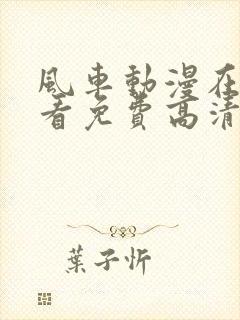 風車動漫在
看免費高清
葉子忻